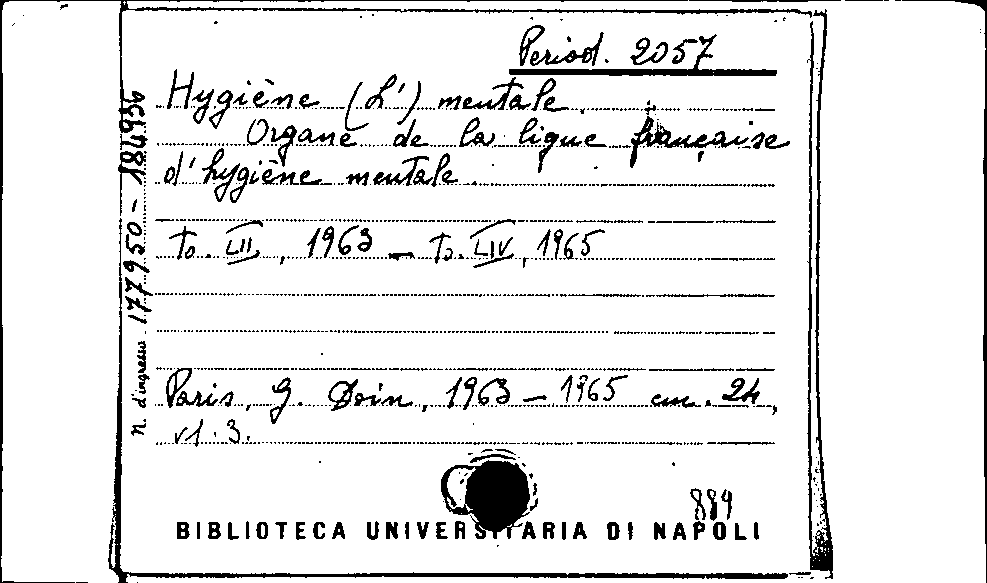 Period. 2057
Hygiène (L') mentale.
Organe de la ligue française
d'hygiène mentale.
To. LII, 1963 - To. LIV, 1965
Paris, G. Doin, 1963 - 1965 cm. 24,
vl. 3.
n. d'ingresso 177950-184936
889
BIBLIOTECA UNIVERSITARIA DI NAPOLI